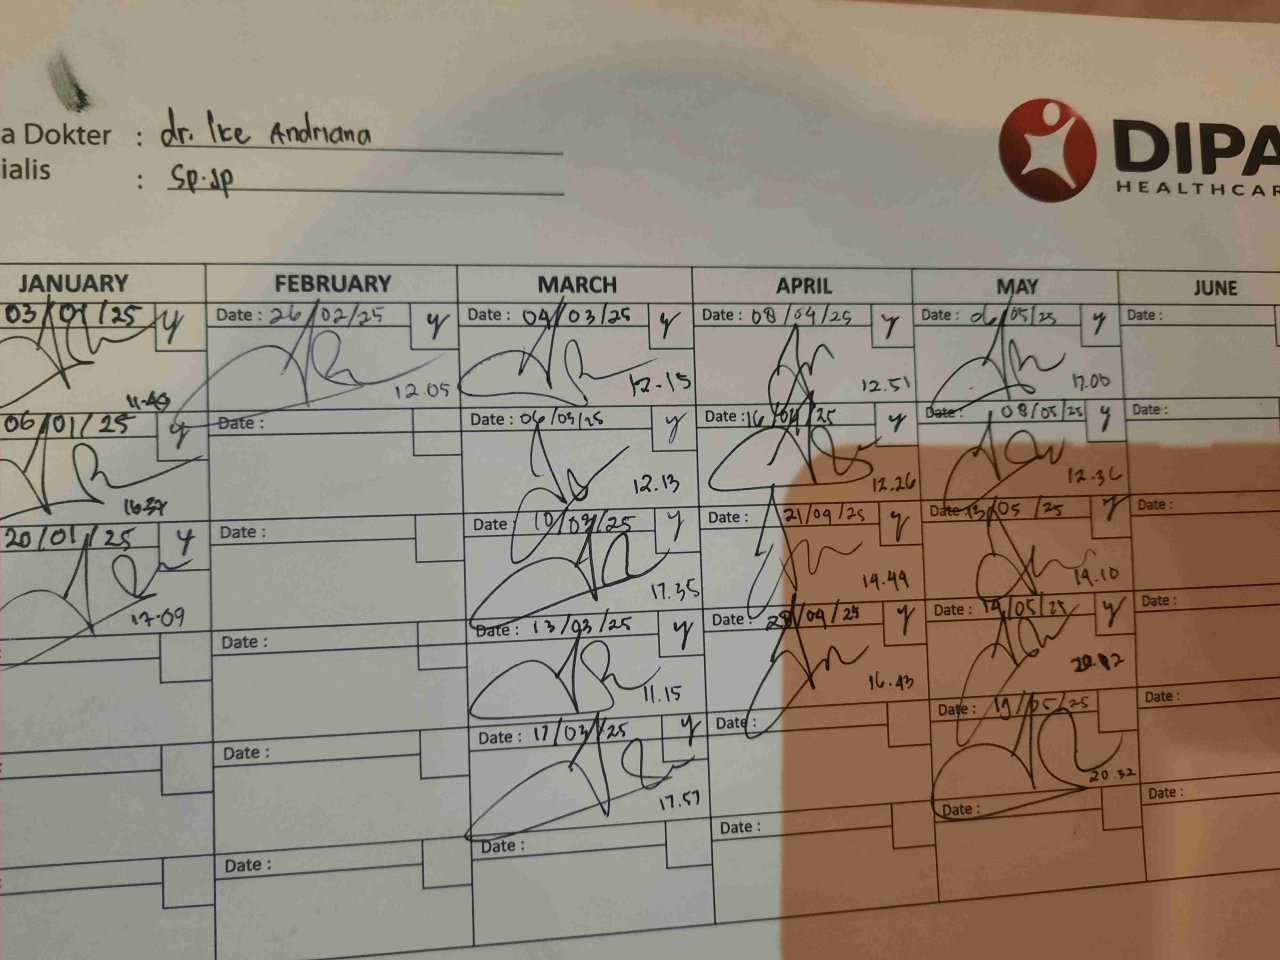 a Dokter : dr. Ike Andriana
ialis : Sp.Jp
DIPA
HEALTHCAR
JANUARY FEBRUARY MARCH APRIL MAY JUNE
03/01/25 y Date : 26/02/25 y Date : 04/03/25 y Date : 08/04/25 y Date : 06/05/25 y Date :
11.40 12.05 12.15 12.51 17.00
06/01/25 y Date : Date : 06/03/25 y Date : 16/04/25 y Date : 08/05/25 y Date :
16.37 12.13 12.26 12.36
20/01/25 y Date : Date : 10/03/25 y Date : 21/04/25 y Date : 13/05/25 y Date :
17.09 17.35 14.44 14.10
Date : Date : 13/03/25 y Date : 28/04/25 y Date : 14/05/25 y Date :
11.15 16.43 20.12
Date : Date : 17/03/25 y Date : Date : 19/05/25 Date :
17.57 20.32
Date : Date : Date : Date : Date :